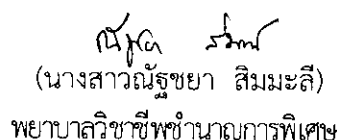 (นางสาวณัฐชยา สิมมะลี)
พยาบาลวิชาชีพชำนาญการพิเศษ